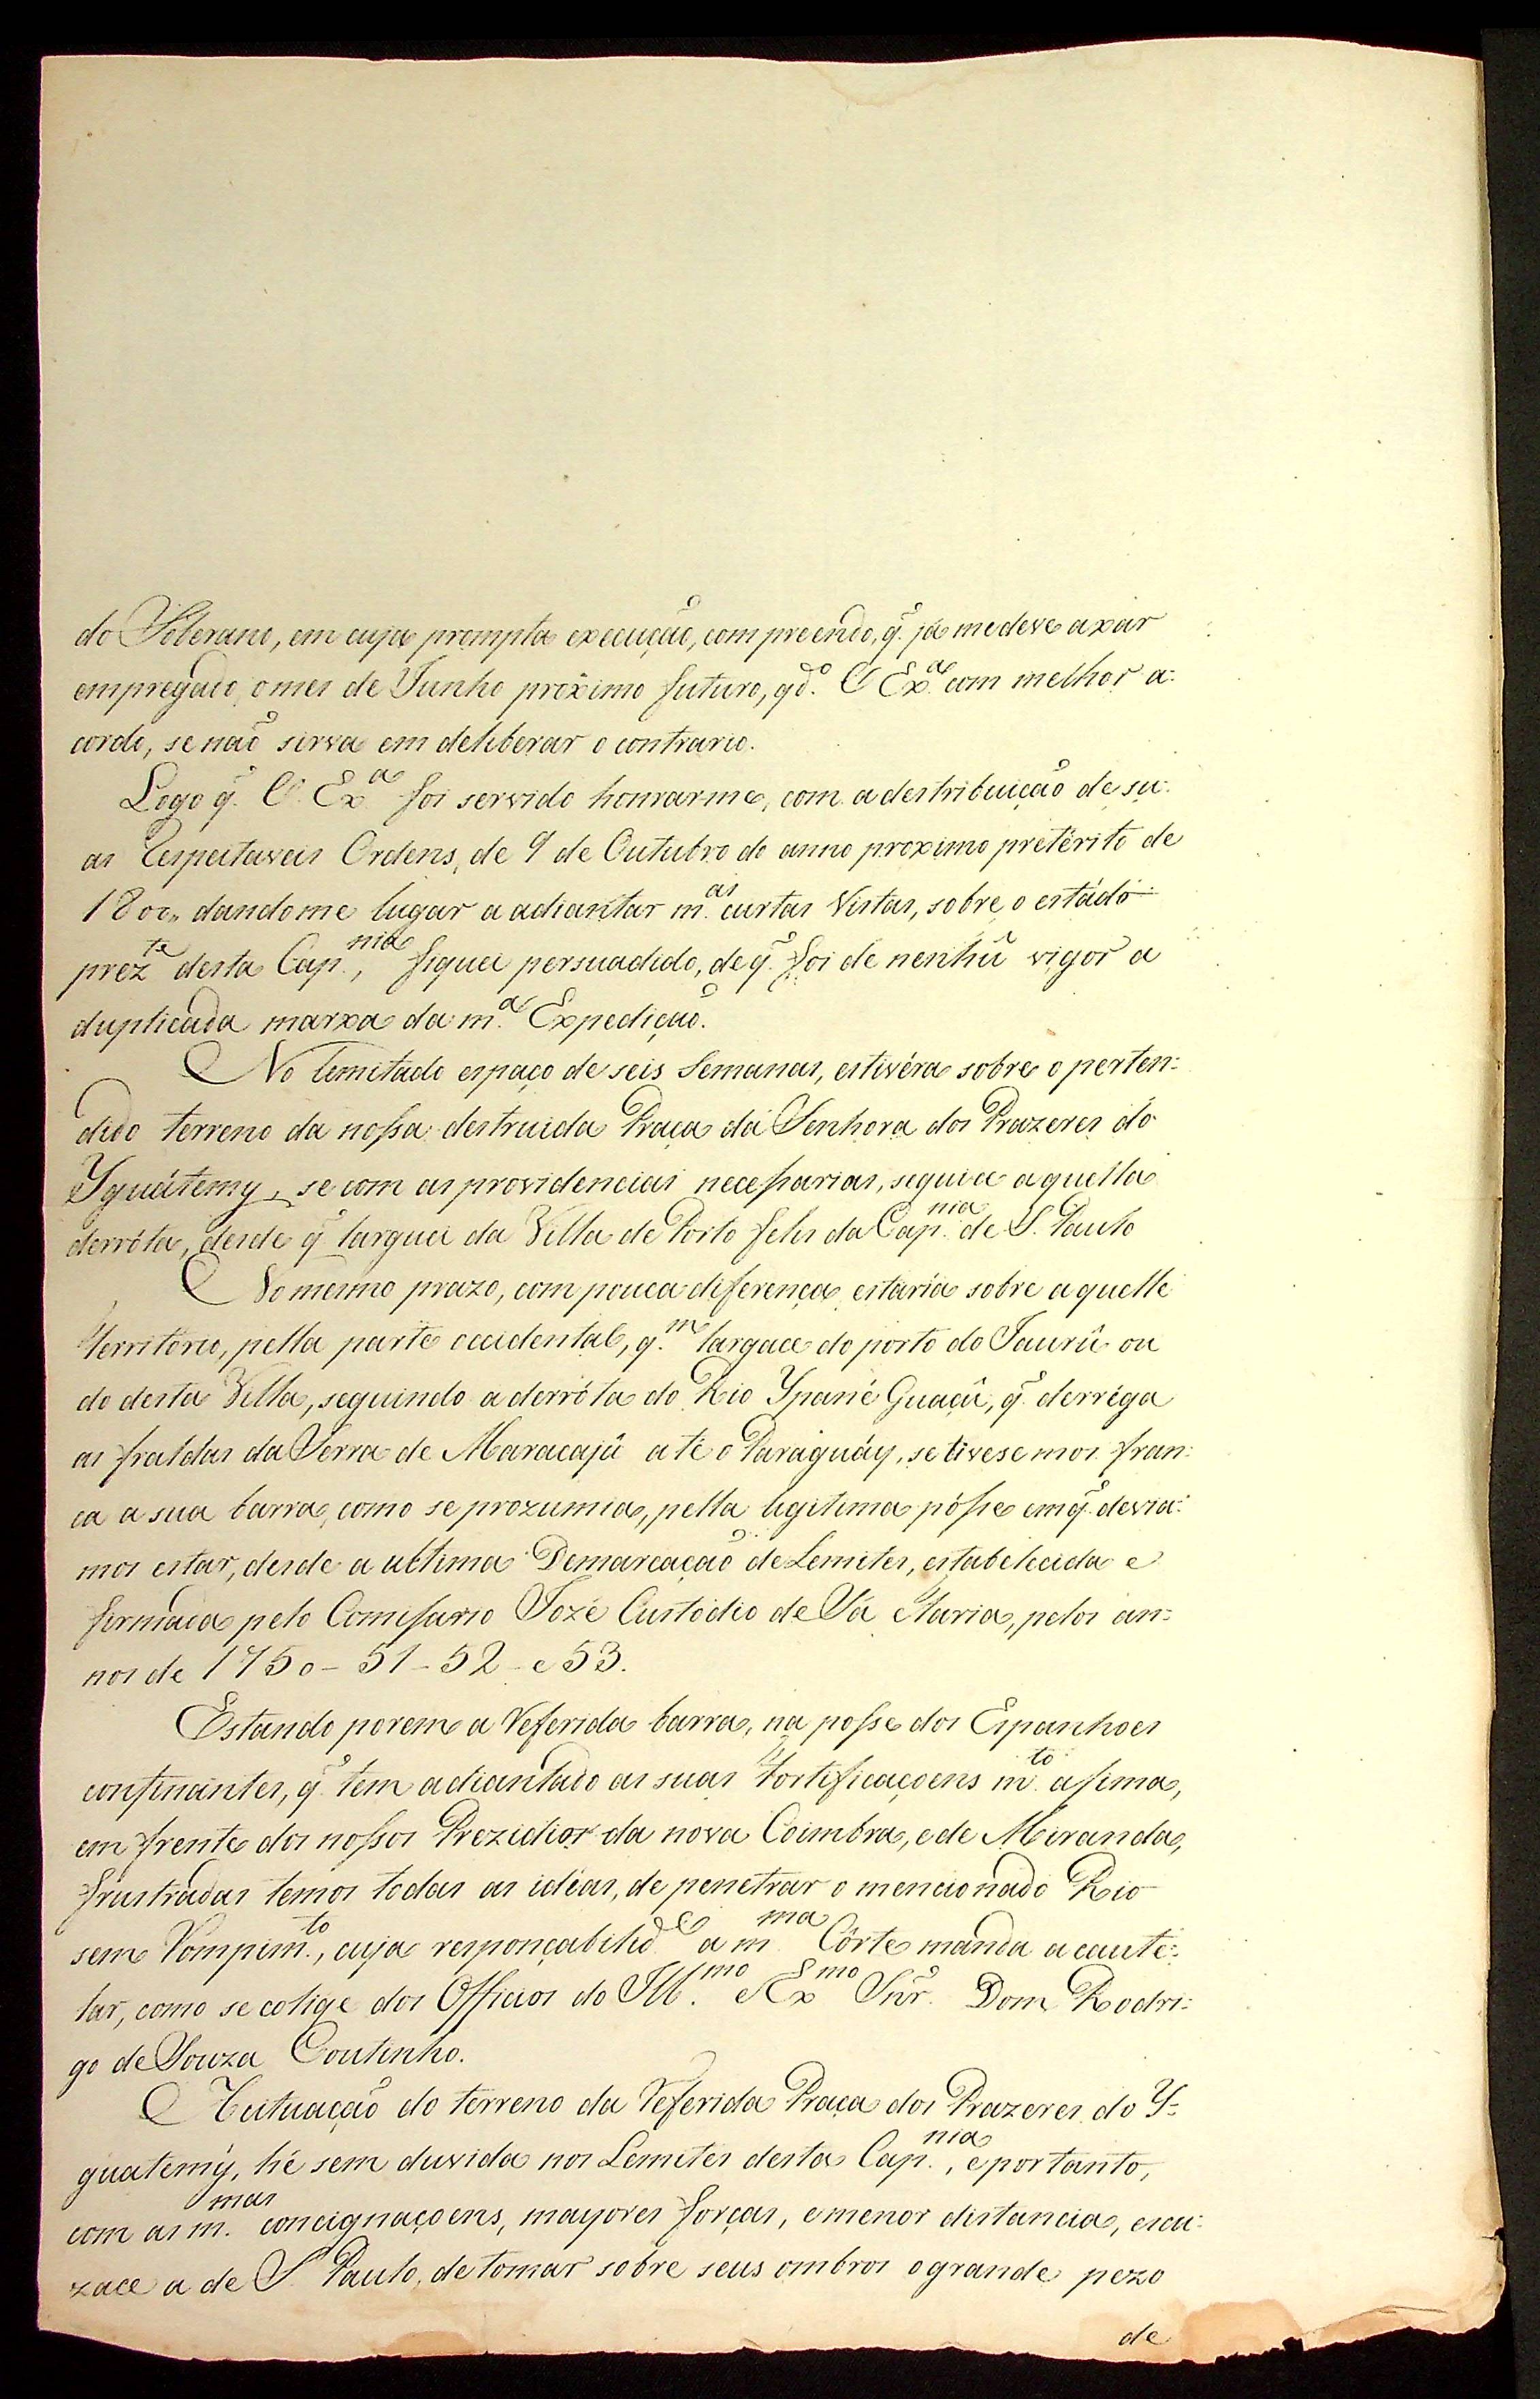 do Soberano, em cuja prompta execução, compreendo, q̃. já me deve axár
empregado, o mes de Junho próximo futuro, qdo. V Exa. com melhor a=
cordo, se não sirva em deliberar o contrario.
Logo q̃. V. Exa. foi servido honrarme, com a destribuição de su=
as Respeitaveis Ordens, de 9 de Outubro do anno proximo pretérito de
1800,, dandome lugar a adiantar mas. curtas Vistas, sobre o estádo
prezte desta Capnia., fiquei persuadido, de q̃. foi de nenhũ vigor a
duplicada marxa da ma. Expedição.
No Lemitado espaço de seis Semanas, estivéra sobre o perten=
dido terreno da nossa destruida Praça da Senhora dos Prazeres do
Yguátemy, se com as providencias necessarias, seguice aquella
derróta, desde q̃ larguei da Villa de Porto felis da Capnia. de S. Paulo
No mesmo prazo, com pouca diferença, estaría sobre aquelle
território, pella parte occidental, qm. largace do porto do Jaurû ou
do desta Villa, seguindo a derróta do Rio Ypané Guaçû, q̃. derréga
as fraldas da Serra de Maracajû até o Paraguáy, se tivesemos fran=
ca a sua barra, como se prozumia, pella legitima pósse em q̃. devia=
mos estar, desde a ultima Demarcação de Lemites, estabelecida e
firmada pelo Comisario Jozé Custódio de Sá e Faria, pelos an=
nos de 1750 - 51 - 52 - e 53.
Estando porem a Referida barra, na posse dos Espanhoes
confinantes, q̃ tem adiantado as suas Fortificaçoens mto. asima,
em frente dos nossos Prezidios da nova Coimbra, e de Miranda,
frustradas temos todas as idéas, de penetrar o mencionado Rio
sem Rompimto., cuja responçabilide a mma Côrte manda acaute=
lar, como se colige dos Officios do Illmo. e Exmo Snr̃. Dom Rodri=
go de Souza Coutinho.
A Cituação do terreno da Referida Praça dos Prazeres do Y=
guatemý, hé sem duvida nos Lemites desta Capnia., e portanto,
com as mmas. concignaçoens, mayores forças, e menor distancia, escu=
zace a de S. Paulo, de tomar sobre seus ombros o grande pezo
de